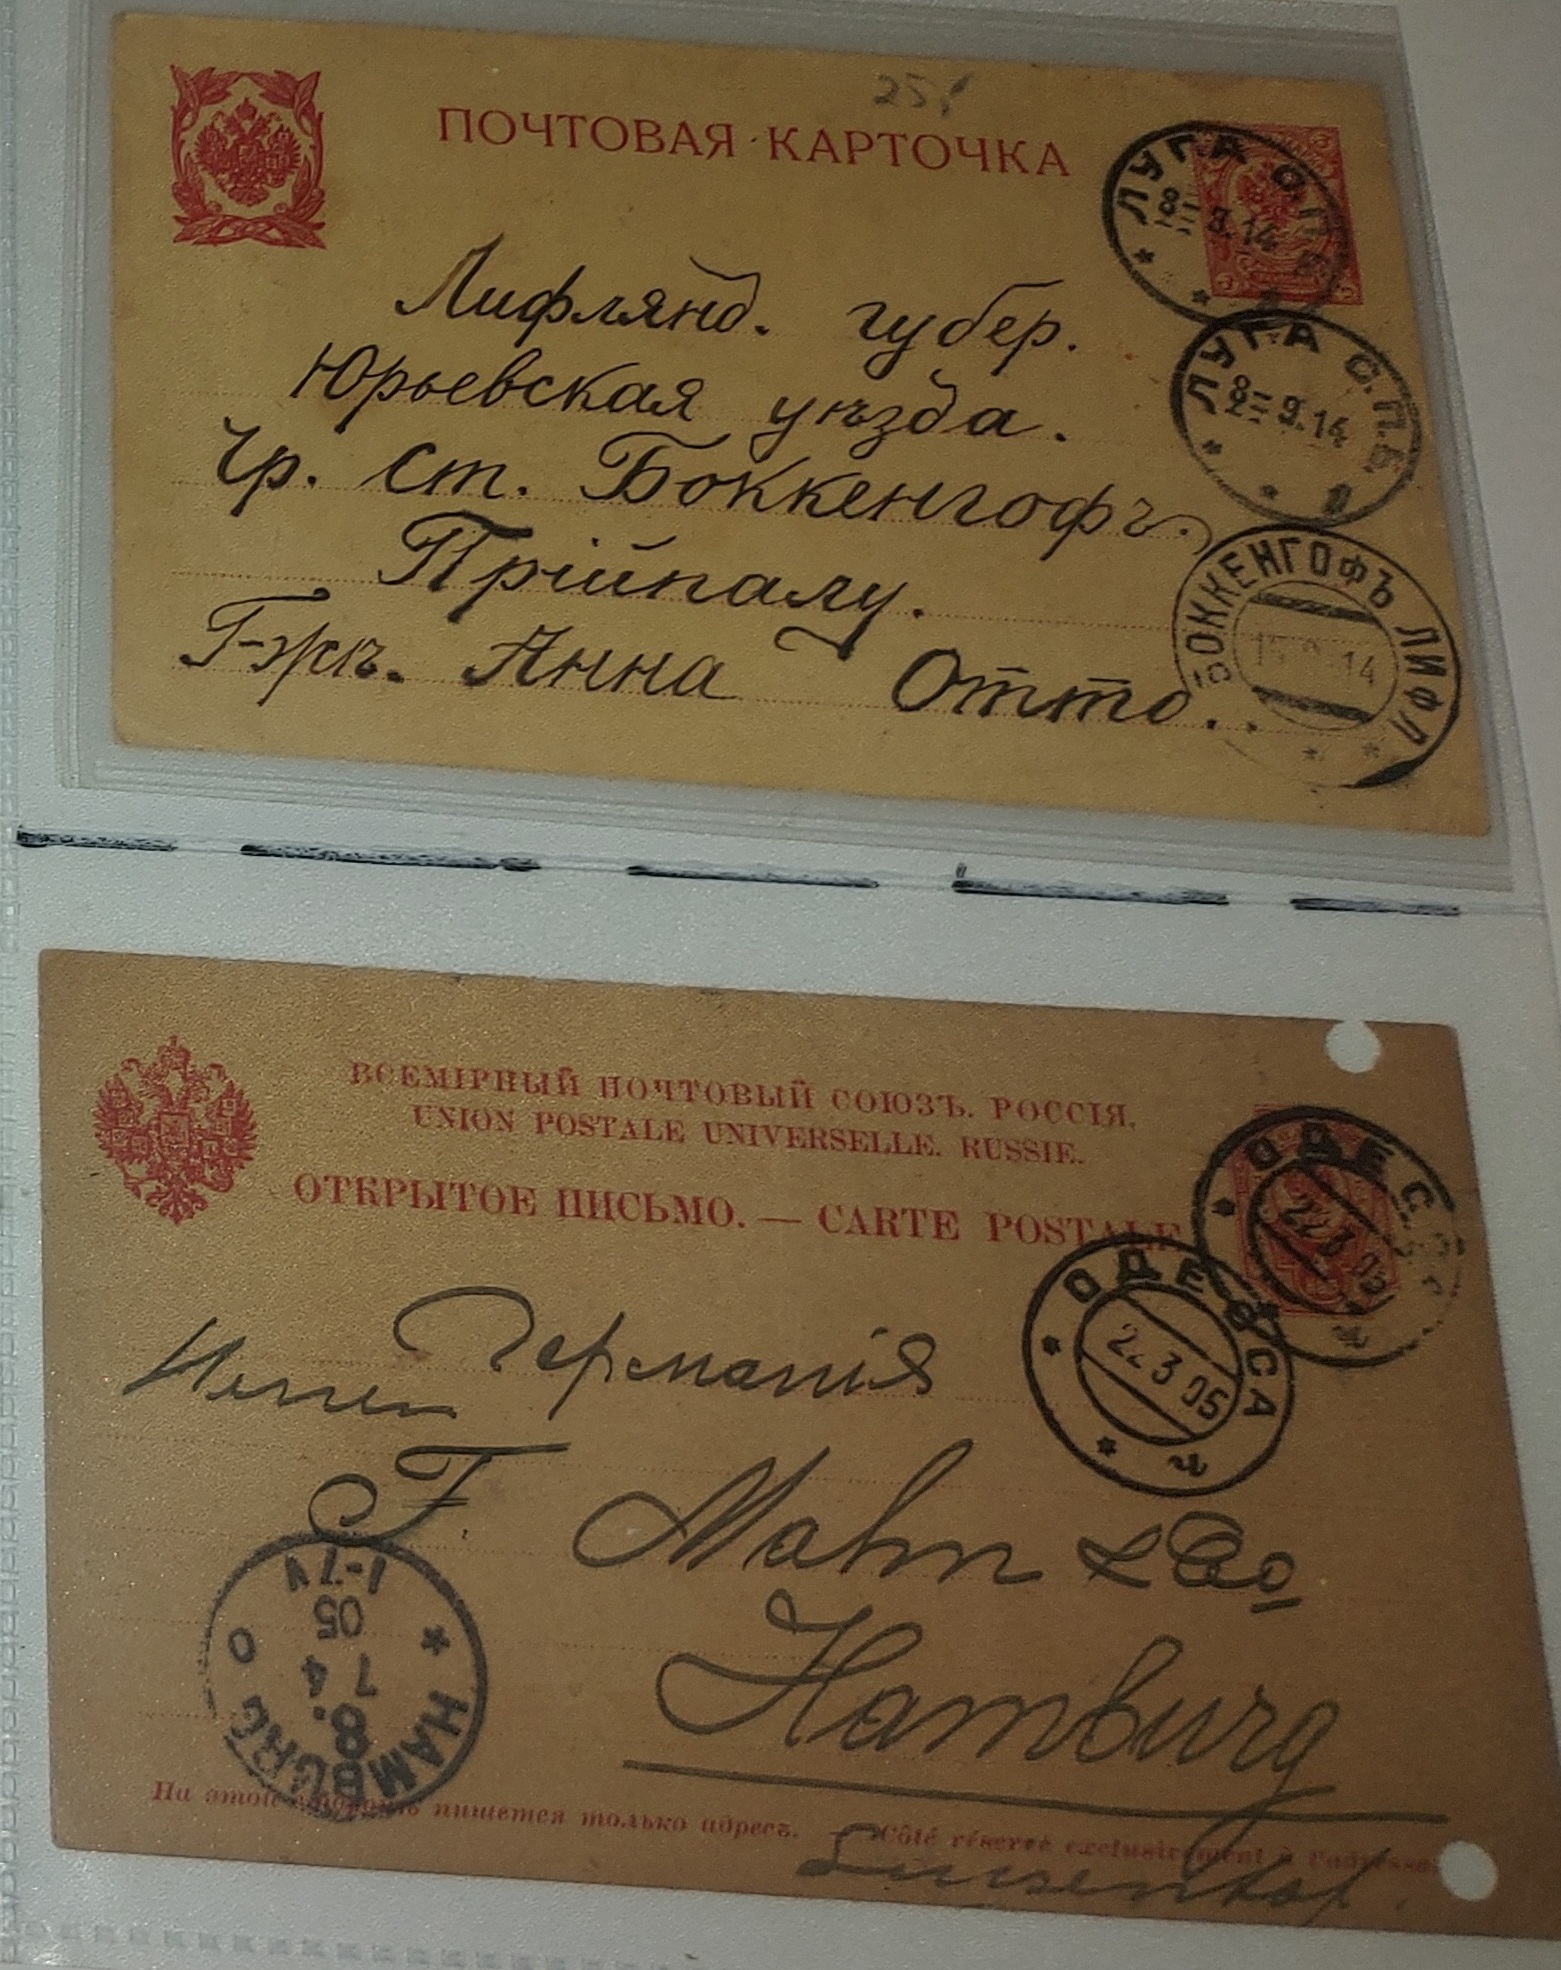 25
ПОЧТОВАЯ КАРТОЧКА
ЛУГА С.П.Б.
8 9.14
Лифлянд. губер.
Юрьевская уѣзда.
Чр. ст. Боккенгофъ.
ЛУГА С.П.Б.
8 9.14
Прійпалу.
Г-жѣ. Анна Отто.
БОККЕНГОФЪ ЛИФЛ
14
ВСЕМІРНЫЙ ПОЧТОВЫЙ СОЮЗЪ. РОССІЯ.
UNION POSTALE UNIVERSELLE. RUSSIE.
ОТКРЫТОЕ ПИСЬМО. — CARTE POSTALE
ОДЕССА
22.3 05
ОДЕССА
22.3 05
Германія
Herren
F. Mahn & Co
Hamburg
HAMBURG
8.
7 4
05
1-7N
На этой сторонѣ пишется только адресъ. — Côté réservé exclusivement à l'adresse.